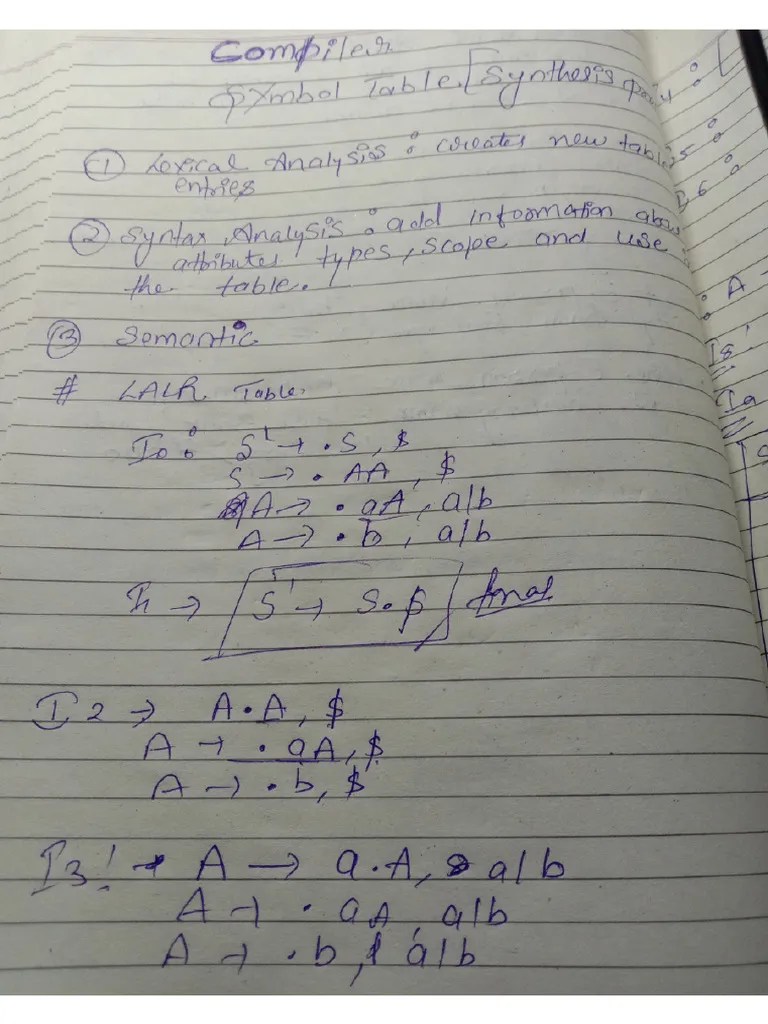 Compiler
Symbol Table. [Synthesis
① Lexical Analysis : creates new table
entries
② Syntax Analysis : add information abou
attributes types, scope and use
the table.
③ Semantic
# LALR Table.
I0 : S' → .S, $
S → . AA, $
A → . aA, a/b
A → . b, a/b
I1 → S' → S. $ final
I2 → A.A, $
A → . aA, $
A → . b, $
I3 : → A → a.A, a/b
A → . aA, a/b
A → . b, a/b
5 :
I6 :
: A
I8
I9
S